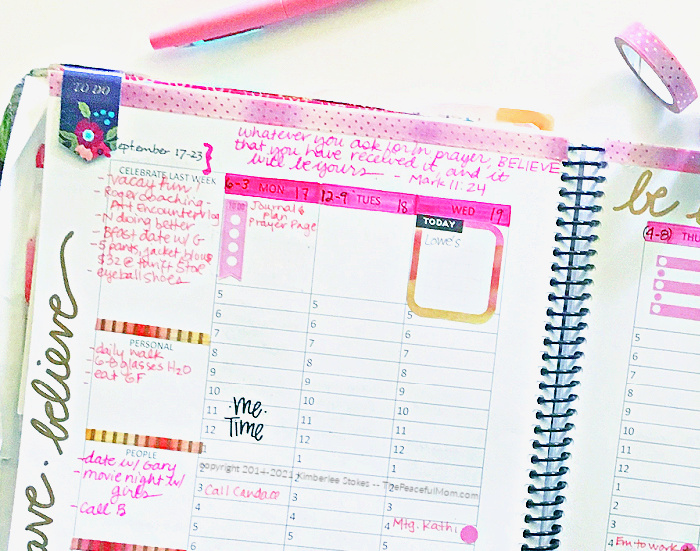 TO DO
September 17-23
whatever you ask for in prayer, BELIEVE
that you have received it, and it
will be yours - Mark 11:24
CELEBRATE LAST WEEK
- vacay fun!
- Roger coaching -
Art Encounter blog
- N doing better
- Bfast date w/ G
- 5 pants, jacket, blous
$32 @ thrift store
- eyeball shoes
PERSONAL
- daily walk
- 6-8 glasses H2O
- eat GF
PEOPLE
- date w/ Gary
- movie night w/
girls
- Call B
6-3 MON 17
TO DO
Journal &
Plan
Prayer Page
5
6
7
8
9
10
11
12
1
2
3 Call Candace
4
me
Time
12-9 TUES 18
5
6
7
8
9
10
11
12
1
2
3
4
WED 19
TODAY
Lowe's
5
6
7
8
9
10
11
12
1
2
3
4 Mtg. Kathi
be
(4-8) THU
5
6
7
8
9
10
11
12
1
2
3
4 Em to work
believe
copyright 2014-2021 Kimberlee Stokes -- ThePeacefulMom.com